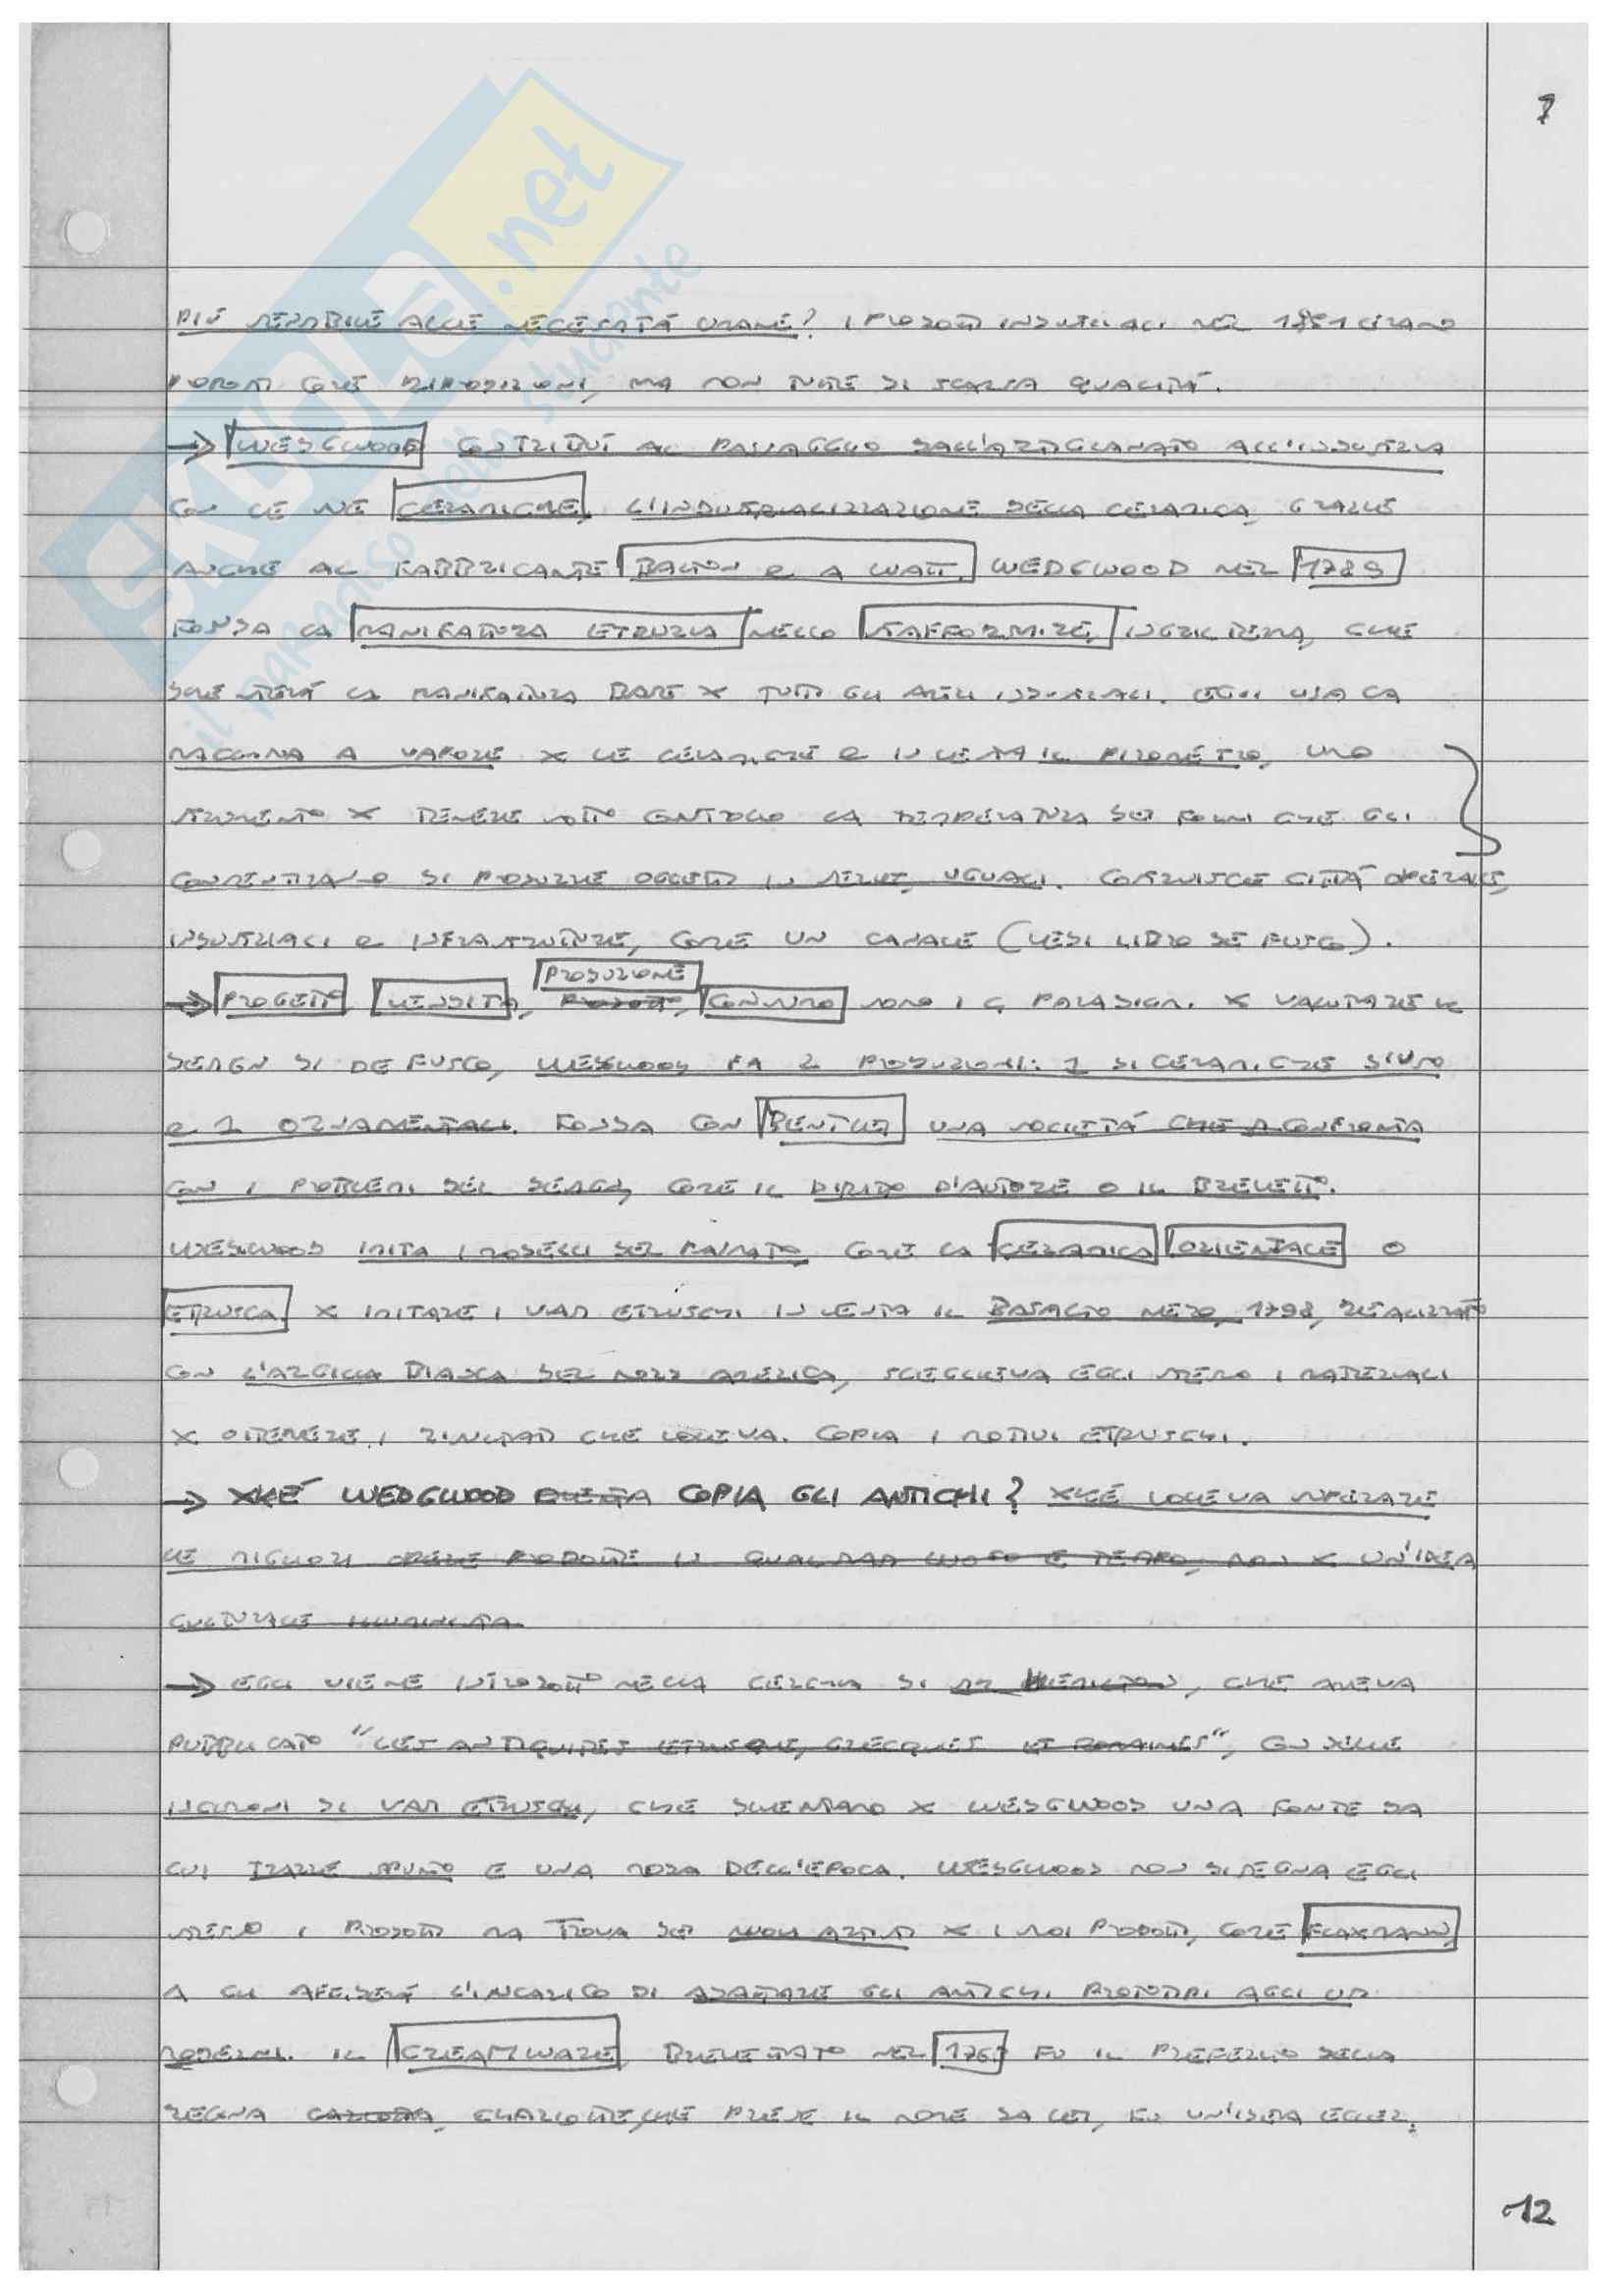 7
SKUOLA.net
il paradiso dello studente
PIÙ SENSIBILE ALLE NECESSITÀ UMANE? I PRODOTTI INDUSTRIALI NEL 1851 ERANO
POSTI COME DIMOSTRAZIONI, MA NON TUTTE DI SCARSA QUALITÀ.
→ WEDGWOOD CONTRIBUÌ AL PASSAGGIO DALL'ARTIGIANATO ALL'INDUSTRIA
CON LE SUE CERAMICHE, L'INDUSTRIALIZZAZIONE DELLA CERAMICA, GRAZIE
ANCHE AL FABBRICANTE BALTON E A WATT. WEDGWOOD NEL 1789
FONDA LA MANIFATTURA ETRURIA NELLO STAFFORMIRE, INGHILTERRA, CHE
DIVENTERÀ LA MANIFATTURA BASE X TUTTI GLI ALTRI INDUSTRIALI. EGLI USA LA
MACCHINA A VAPORE X LE CERAMICHE E INVENTA IL PIROMETRO, UNO
STRUMENTO X TENERE SOTTO CONTROLLO LA TEMPERATURA DEI FORNI CHE GLI
CONSENTIRANNO DI PRODURRE OGGETTI IN SERIE, UGUALI. COSTRUISCE CITTÀ OPERAIE,
INDUSTRIALI E INFRASTRUTTURE, COME UN CANALE (VEDI LIBRO DE FUSCO).
PRODUZIONE
→ PROGETTO, VENDITA, CONSUMO SONO I 4 PARADIGM. X VALUTARE IL
DESIGN DI DE FUSCO, WEDGWOOD FA 2 PRODUZIONI: 1 DI CERAMICHE D'USO
E 1 ORNAMENTALI. FONDA CON BENTLEY UNA SOCIETÀ CHE SI CONFRONTA
CON I PROBLEMI DEL DESIGN, COME IL DIRITTO D'AUTORE O IL BREVETTO.
WEDGWOOD IMITA I MODELLI DEL PASSATO, COME LA CERAMICA ORIENTALE O
ETRUSCA. X IMITARE I VASI ETRUSCHI INVENTA IL BASALTO NERO, 1798, REALIZZATO
CON L'ARGILLA BIANCA DEL NORD AMERICA, SCEGLIEVA EGLI STESSO I MATERIALI
X OTTENERE I RISULTATI CHE VOLEVA. COPIA I MOTIVI ETRUSCHI.
→ XKÉ WEDGWOOD COPIA GLI ANTICHI? XKÉ VOLEVA SUPERARE
LE MIGLIORI OPERE PRODOTTE IN QUALSIASI LUOGO E TEMPO, NON X UN'IDEA
CULTURALE ILLUMINISTA.
→ EGLI VIENE INTRODOTTO NELLA CERCHIA DI, CHE AVEVA
PUBBLICATO "LES ANTIQUITES ETRUSQUE, GRECQUES ET ROMAINES", CON DELLE
INCISIONI DI VASI ETRUSCHI, CHE DIVENTANO X WEDGWOOD UNA FONTE DA
CUI TRARRE SPUNTO E UNA MODA DELL'EPOCA. WEDGWOOD NON DISEGNA EGLI
STESSO I PRODOTTI MA TROVA DEI NUOVI ARTISTI X I SUOI PRODOTTI, COME FLAXMANN,
A CUI AFFIDERÀ L'INCARICO DI ADATTARE GLI ANTICHI PROTOTIPI AGLI USI
MODERNI. IL CREAMWARE, BREVETTATO NEL FU IL PREFERITO DELLA
REGINA CARLOTTA, CHARLOTTE, CHE PRESE IL NOME DA LEI, FU UN'IDEA ECCEZ.
12